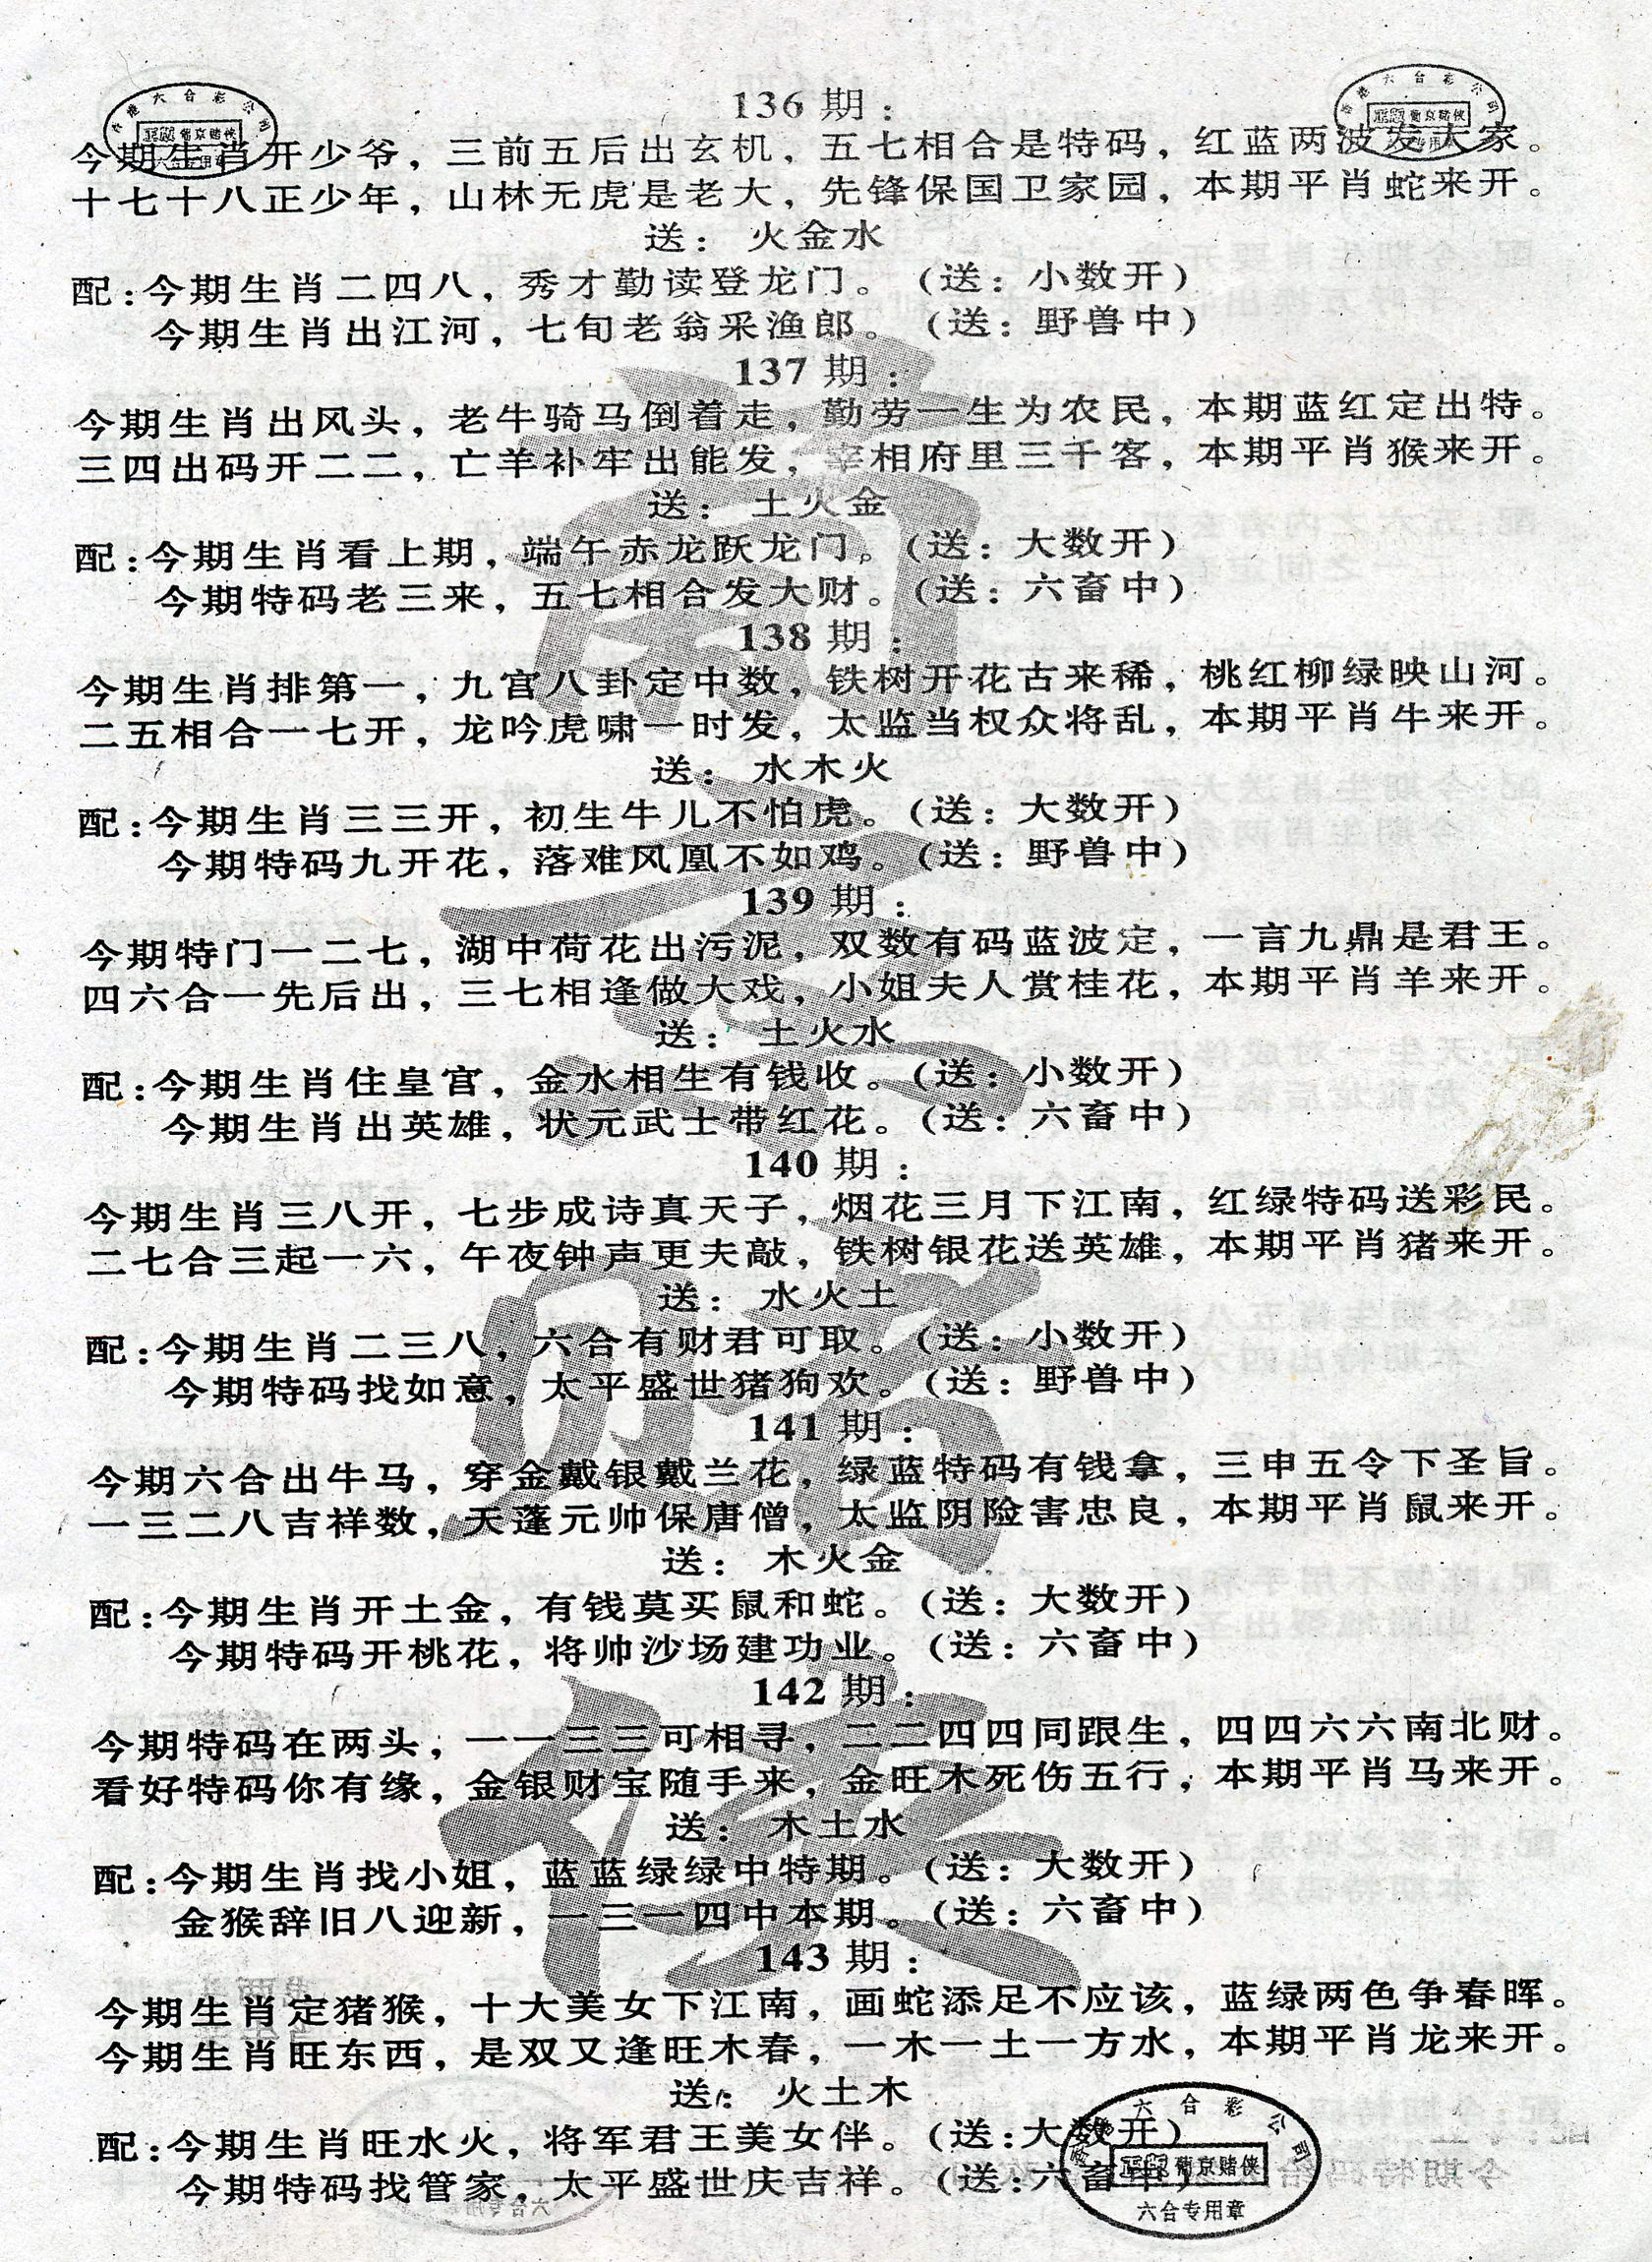 136 期：
今期生肖开少爷，三前五后出玄机，五七相合是特码，红蓝两波发大家。
十七十八正少年，山林无虎是老大，先锋保国卫家园，本期平肖蛇来开。
送：火金水
配：今期生肖二四八，秀才勤读登龙门。（送：小数开）
今期生肖出江河，七旬老翁采渔郎。（送：野兽中）
137 期：
今期生肖出风头，老牛骑马倒着走，勤劳一生为农民，本期蓝红定出特。
三四出码开二二，亡羊补牢出能发，宰相府里三千客，本期平肖猴来开。
送：土火金
配：今期生肖看上期，端午赤龙跃龙门。（送：大数开）
今期特码老三来，五七相合发大财。（送：六畜中）
138 期：
今期生肖排第一，九宫八卦定中数，铁树开花古来稀，桃红柳绿映山河。
二五相合一七开，龙吟虎啸一时发，太监当权众将乱，本期平肖牛来开。
送：水木火
配：今期生肖三三开，初生牛儿不怕虎。（送：大数开）
今期特码九开花，落难风凰不如鸡。（送：野兽中）
139 期：
今期特门一二七，湖中荷花出污泥，双数有码蓝波定，一言九鼎是君王。
四六合一先后出，三七相逢做大戏，小姐夫人赏桂花，本期平肖羊来开。
送：土火水
配：今期生肖住皇宫，金水相生有钱收。（送：小数开）
今期生肖出英雄，状元武士带红花。（送：六畜中）
140 期：
今期生肖三八开，七步成诗真天子，烟花三月下江南，红绿特码送彩民。
二七合三起一六，午夜钟声更夫敲，铁树银花送英雄，本期平肖猪来开。
送：水火土
配：今期生肖二三八，六合有财君可取。（送：小数开）
今期特码找如意，太平盛世猪狗欢。（送：野兽中）
141 期：
今期六合出牛马，穿金戴银戴兰花，绿蓝特码有钱拿，三申五令下圣旨。
一三二八吉祥数，天蓬元帅保唐僧，太监阴险害忠良，本期平肖鼠来开。
送：木火金
配：今期生肖开土金，有钱莫买鼠和蛇。（送：大数开）
今期特码开桃花，将帅沙场建功业。（送：六畜中）
142 期：
今期特码在两头，一一三三可相寻，二二四四同跟生，四四六六南北财。
看好特码你有缘，金银财宝随手来，金旺木死伤五行，本期平肖马来开。
送：木土水
配：今期生肖找小姐，蓝蓝绿绿中特期。（送：大数开）
金猴辞旧八迎新，一三一四中本期。（送：六畜中）
143 期：
今期生肖定猪猴，十大美女下江南，画蛇添足不应该，蓝绿两色争春晖。
今期生肖旺东西，是双又逢旺木春，一木一土一方水，本期平肖龙来开。
送：火土木
配：今期生肖旺水火，将军君王美女伴。（送：大数开）
今期特码找管家，太平盛世庆吉祥。（送：六畜中）
香港六合彩公司
葡京赌侠
六合专用章